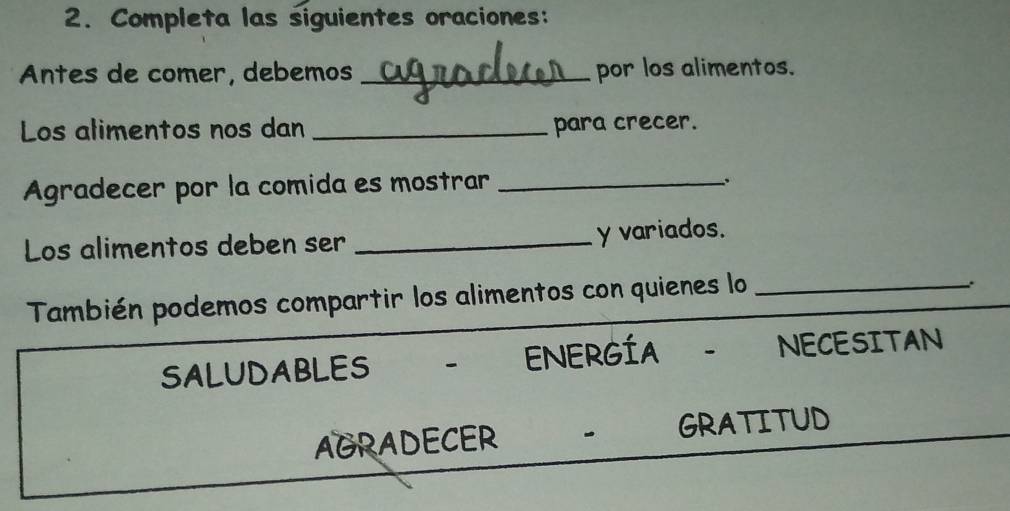 2. Completa las siguientes oraciones:
Antes de comer, debemos agradecer por los alimentos.
Los alimentos nos dan ____________ para crecer.
Agradecer por la comida es mostrar ____________.
Los alimentos deben ser ____________ y variados.
También podemos compartir los alimentos con quienes lo ____________.
SALUDABLES - ENERGÍA - NECESITAN
AGRADECER - GRATITUD